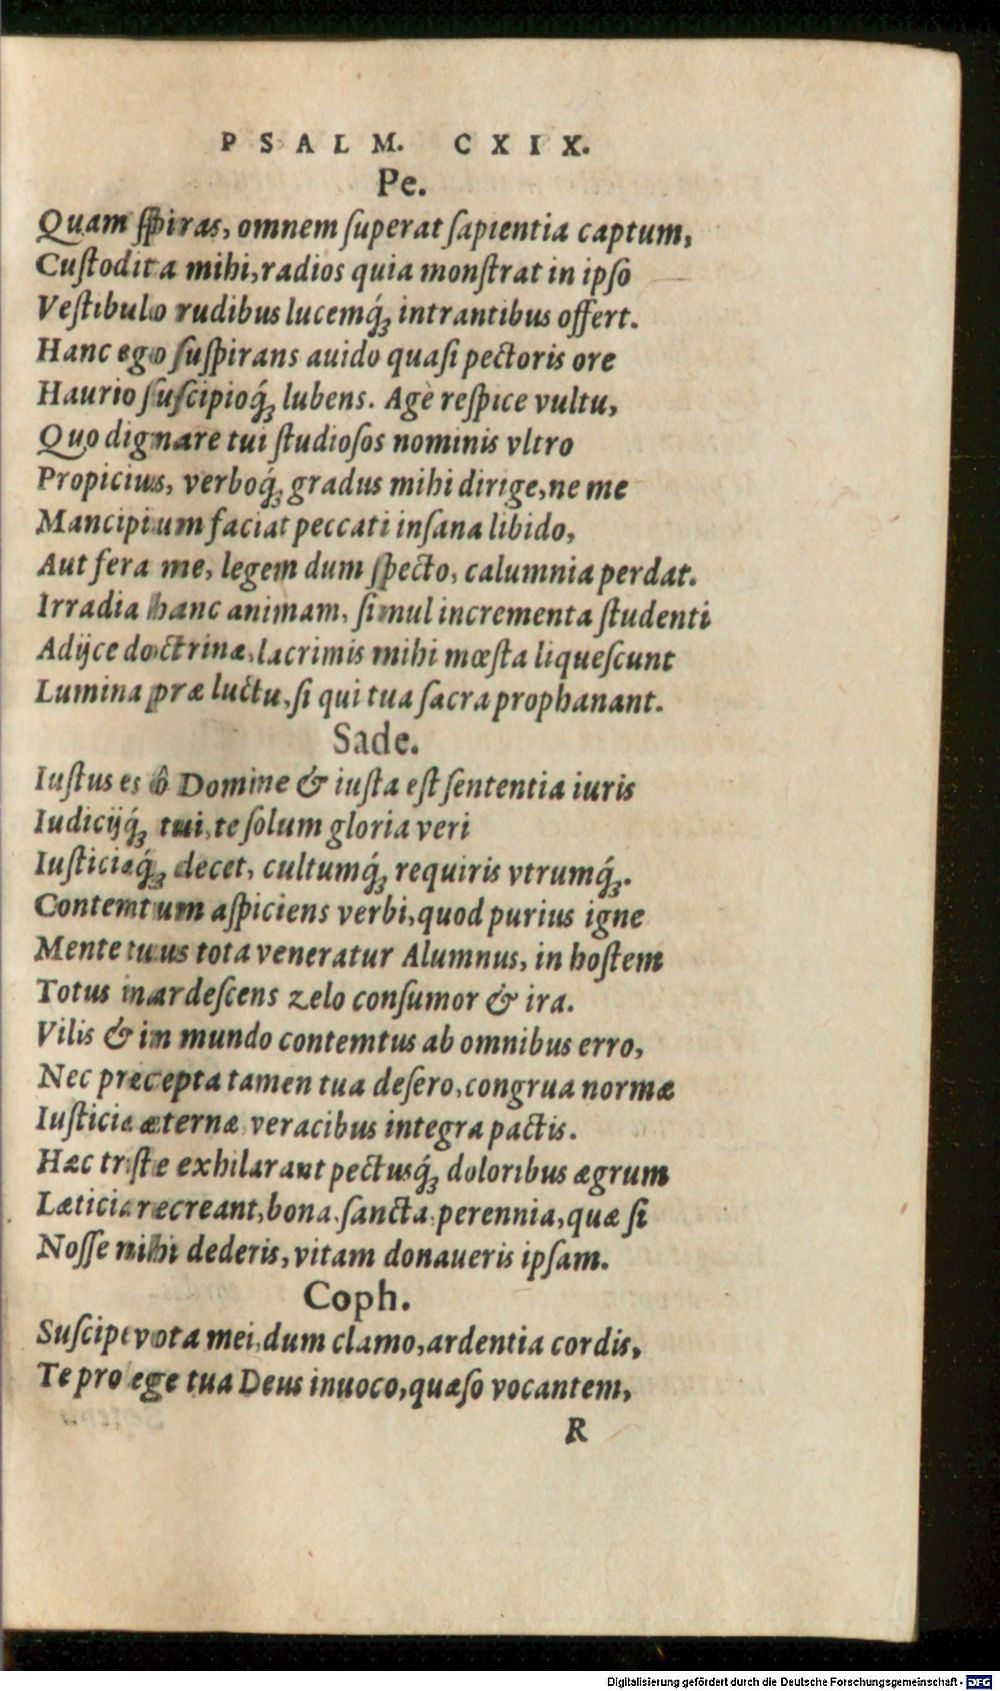 PSALM. CXIX.
Pe.
Quam ſpiras, omnem ſuperat ſapientia captum,
Cuſtodita mihi, radios quia monſtrat in ipſo
Veſtibulo rudibus lucemq́ꝫ intrantibus offert.
Hanc ego ſuſpirans auido quaſi pectoris ore
Haurio ſuſcipioq́ꝫ lubens. Age reſpice vultu,
Quo dignare tui ſtudioſos nominis vltro
Propicius, verboq́ꝫ gradus mihi dirige, ne me
Mancipium faciat peccati inſana libido,
Aut fera me, legem dum ſpecto, calumnia perdat.
Irradia hanc animam, ſimul incrementa ſtudenti
Adijce doctrinæ, lacrimis mihi mœſta liqueſcunt
Lumina præ luctu, ſi qui tua ſacra prophanant.
Sade.
Iuſtus es ô Domine & iuſta eſt ſententia iuris
Iudicijq́ꝫ tui, te ſolum gloria veri
Iuſticiæq́ꝫ decet, cultumq́ꝫ requiris vtrumq́ꝫ.
Contemtum aſpiciens verbi, quod purius igne
Mente tuus tota veneratur Alumnus, in hoſtem
Totus inardeſcens zelo conſumor & ira.
Vilis & in mundo contemtus ab omnibus erro,
Nec præcepta tamen tua deſero, congrua normæ
Iuſticiæ æternæ veracibus integra pactis.
Hæc triſte exhilarant pectusq́ꝫ doloribus ægrum
Læticia recreant, bona ſancta perennia, quæ ſi
Noſſe mihi dederis, vitam donaueris ipſam.
Coph.
Suſcipe vota mei, dum clamo, ardentia cordis,
Te pro lege tua Deus inuoco, quæſo vocantem,
R
Digitalisierung gefördert durch die Deutsche Forschungsgemeinschaft - DFG